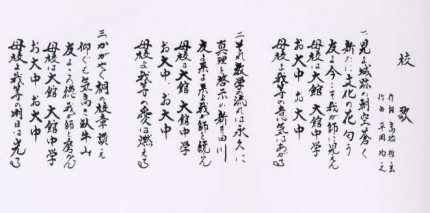 校歌
作詞 高橋
作曲 平岡均之
一、見よ城跡の朝空蒼く
新たに文化の花匂う
友よ今こそ我が師に見えん
母校は大館大館中学
お大中お大中
母校よ我等の意気はあがる
二、それ教学の流れは永久に
真理の啓示の新田川
友よ来よ来よ我が師と続かん
母校は大館大館中学
お大中お大中
母校よ我等の愛は燃える
三、かがやく桐の徽章讃え
仰ぐも気高き鳳牛山
友よこの徳我が師と磨かん
母校は大館大館中学
お大中お大中
母校よ我等の明日は光る